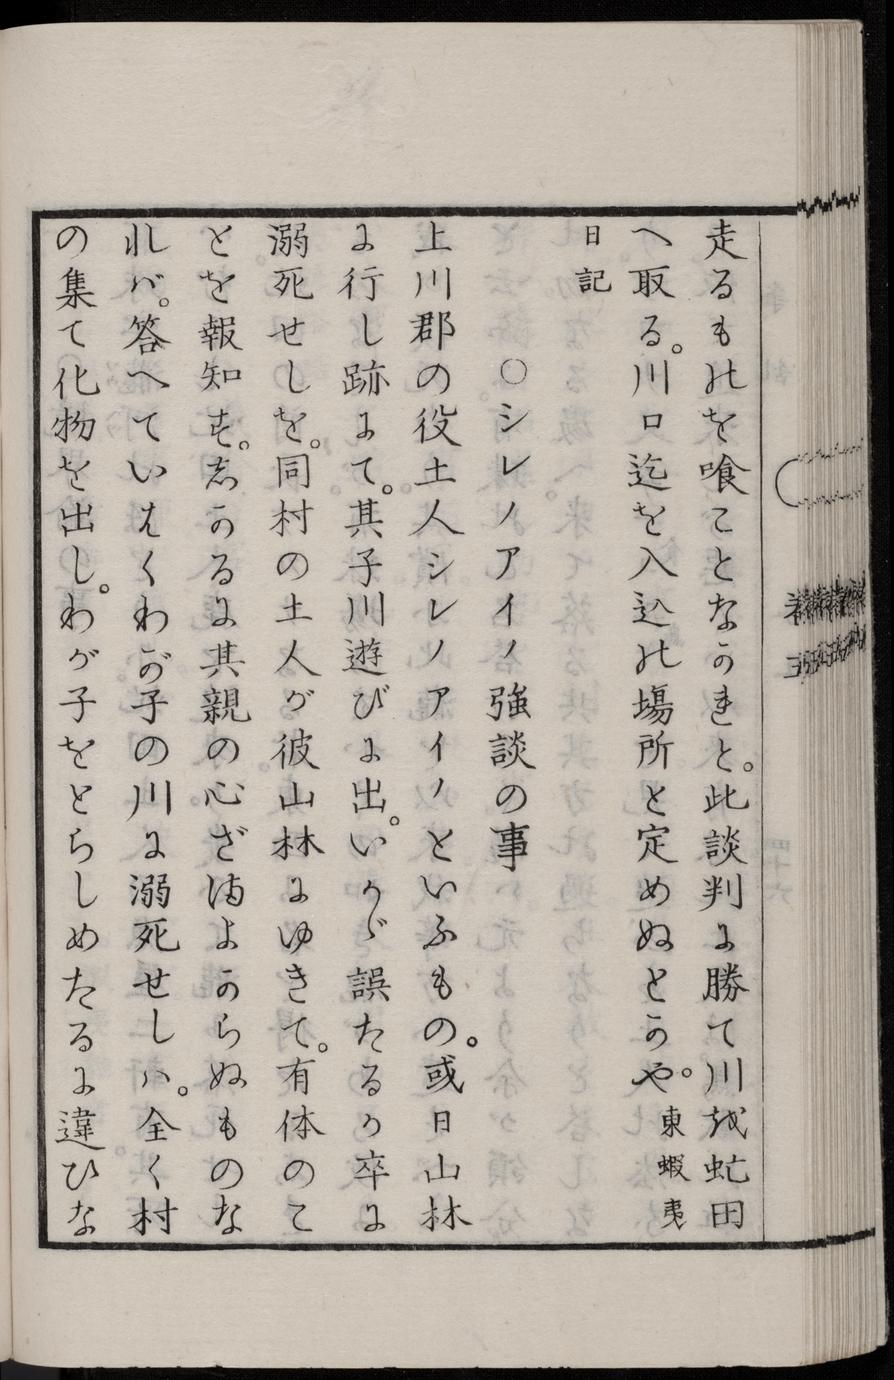 走るものを喰ことなかれと。此談判に勝て川を虻田
へ取る。川口迄を入込の場所と定めぬとかや。東蝦夷
日記
○シレノアイノ強談の事
上川郡の役土人シレノアイノといふもの。或日山林
に行し跡にて。其子川遊びに出。いかゞ誤たるか卒に
溺死せしを。同村の土人が彼山林にゆきて。有体のこ
とを報知す。志かるに其親の心ざまよからぬものな
れバ。答へていはくわが子の川に溺死せしハ。全く村
の集て化物を出し。わが子をとらしめたるに違ひな